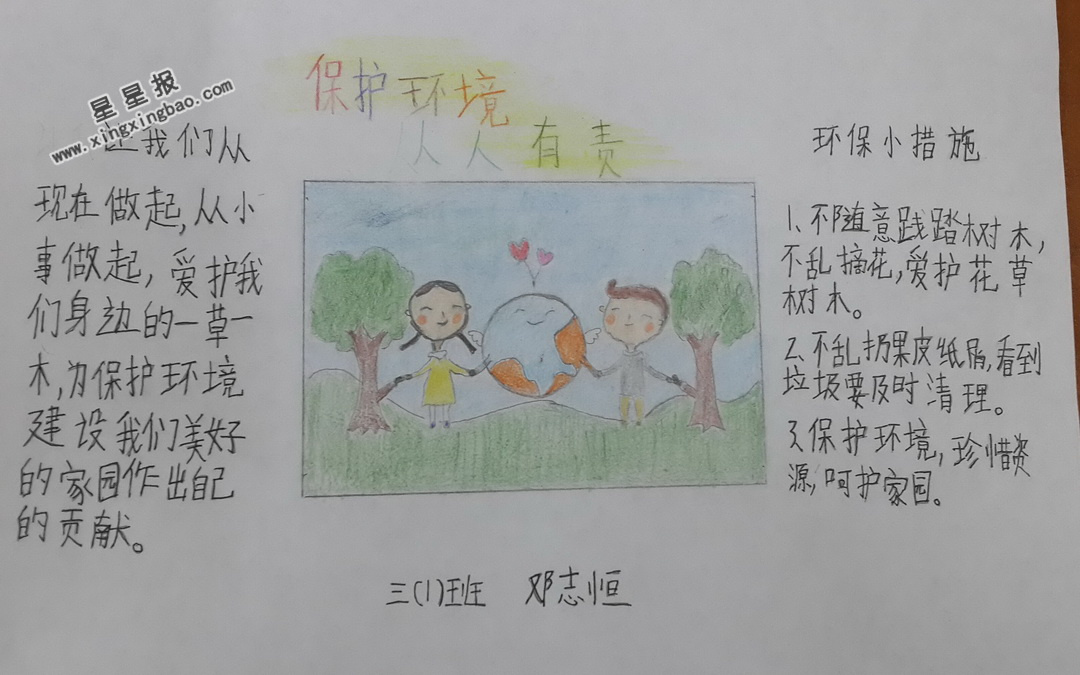 星星报
www.xingxingbao.com
保护环境
人人有责
让我们从
现在做起,从小
事做起,爱护我
们身边的一草一
木,为保护环境
建设我们美好
的家园作出自己
的贡献。
环保小措施
1、不随意践踏树木,
不乱摘花,爱护花草
树木。
2、不乱扔果皮纸屑,看到
垃圾要及时清理。
3、保护环境,珍惜资
源,呵护家园。
三(1)班 邓志恒